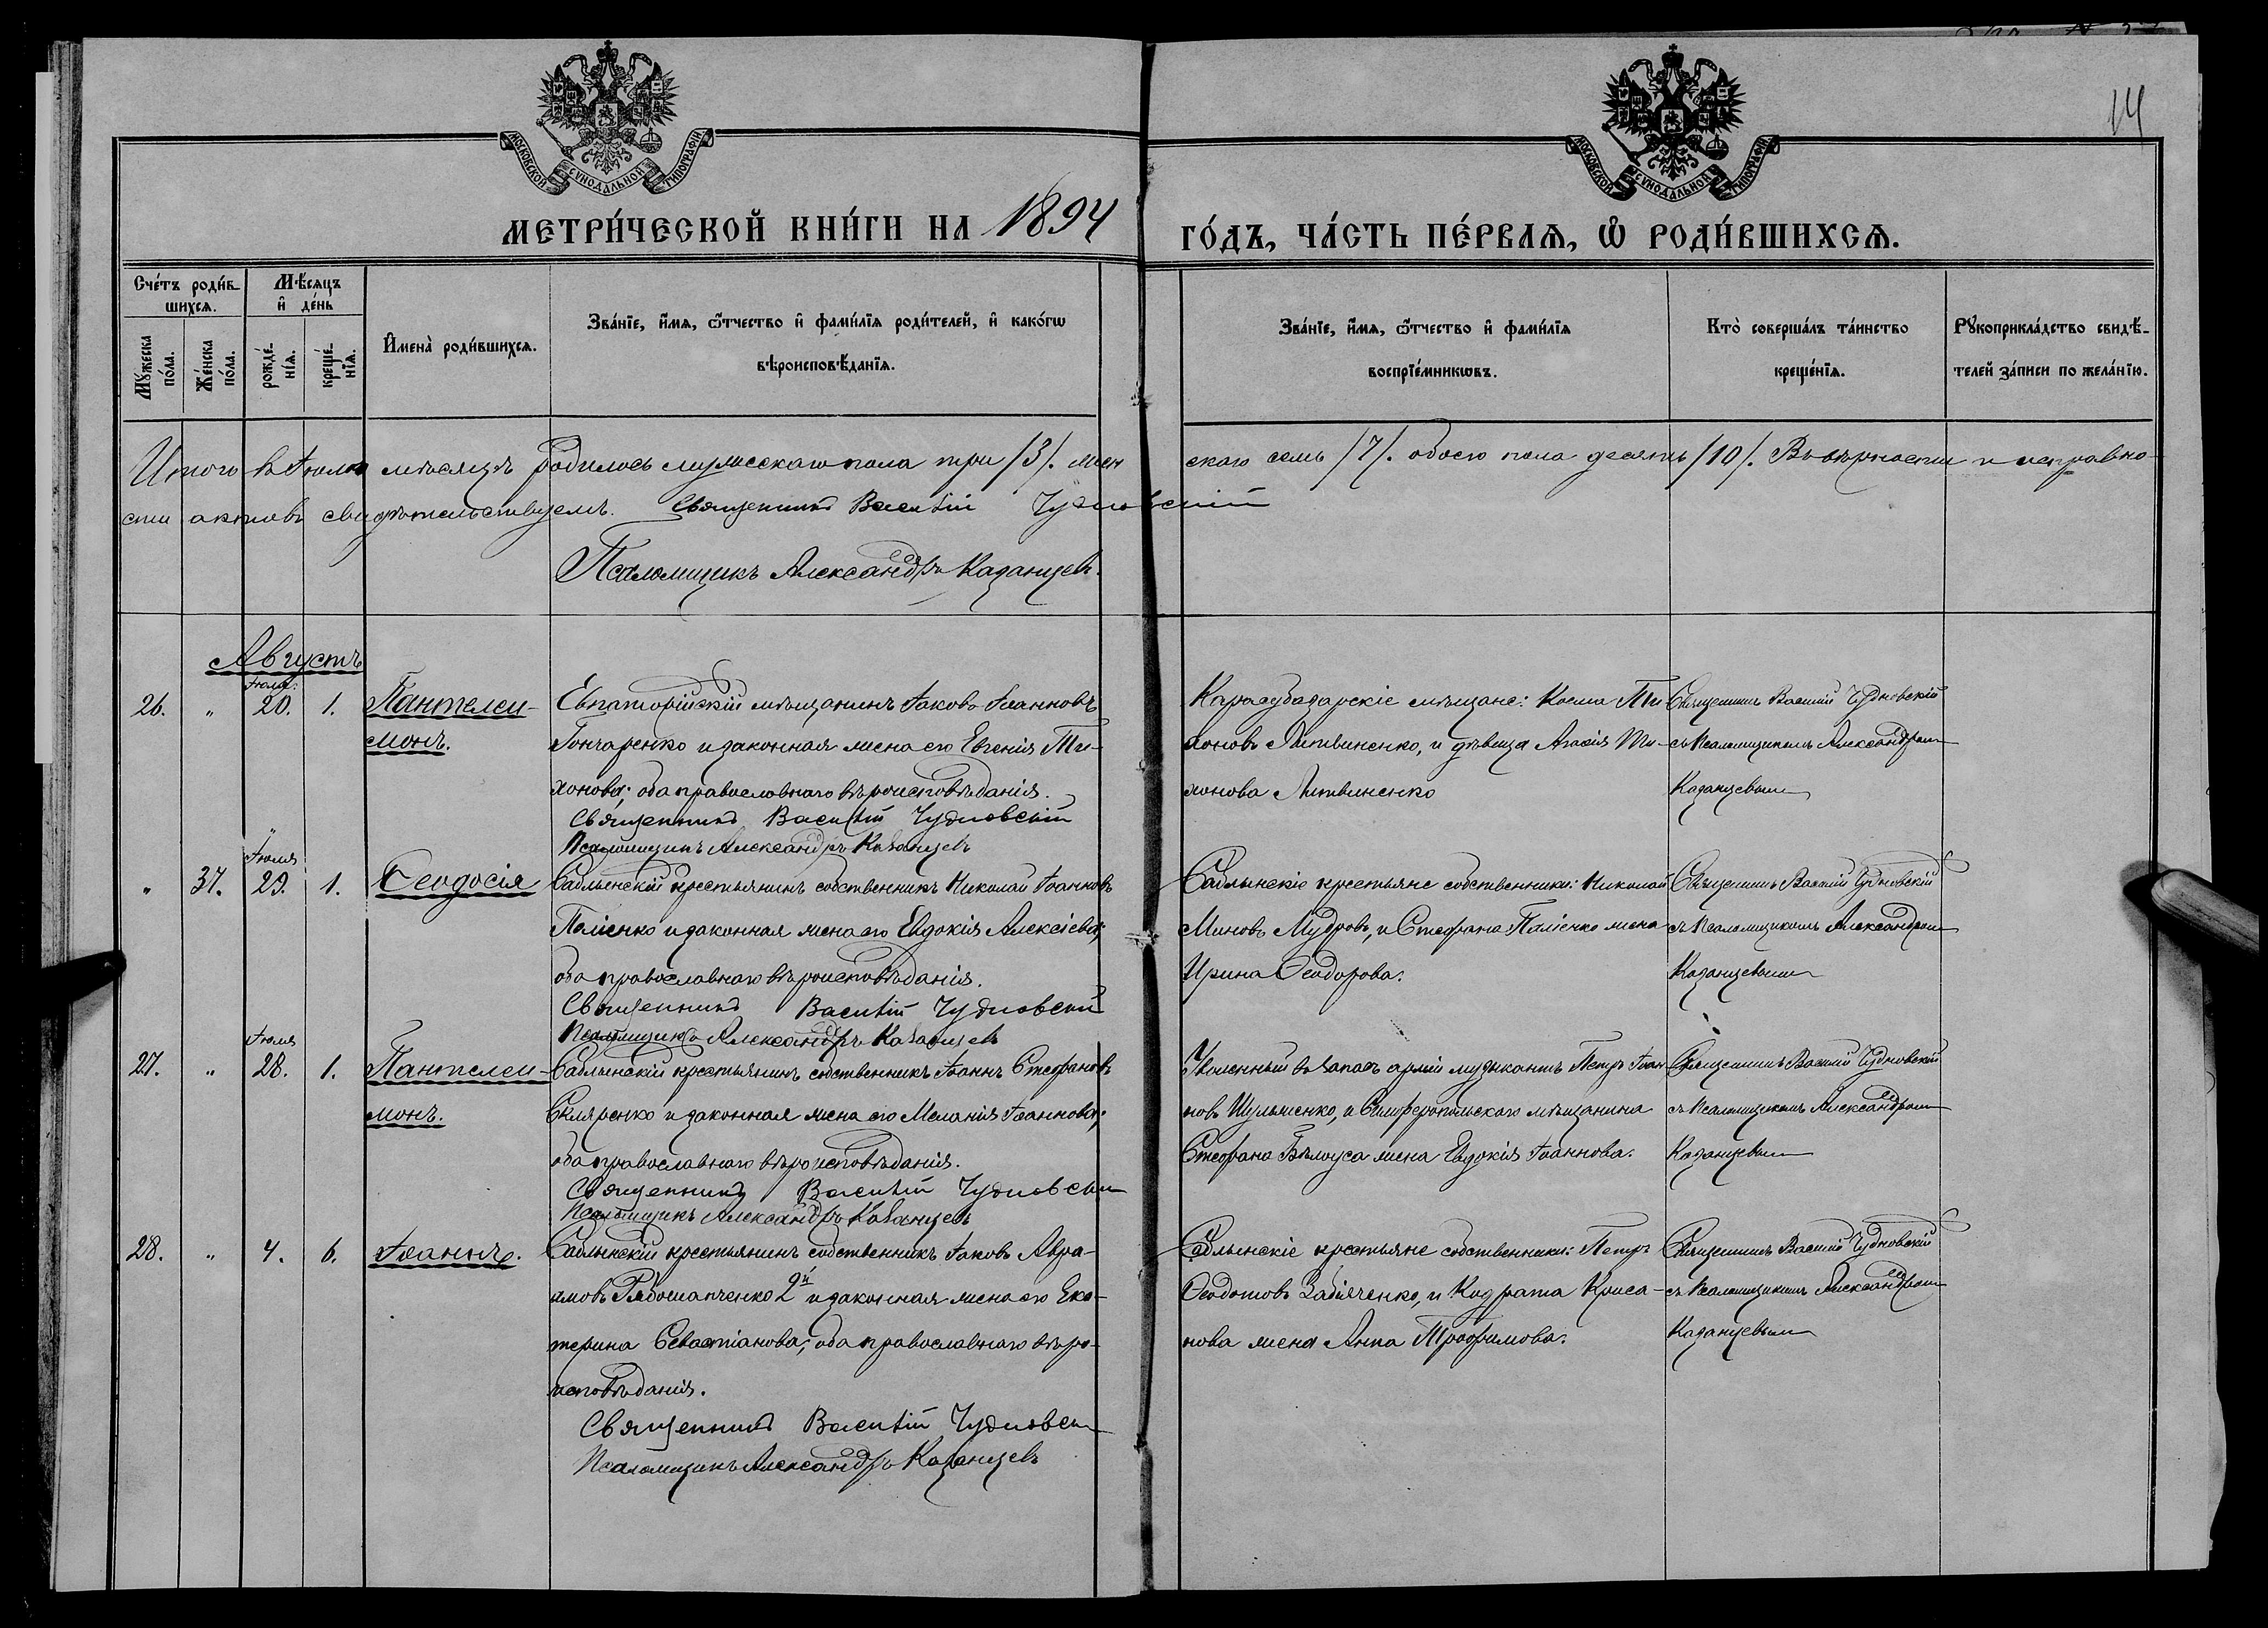 14
МОСКОВСКОЙ СУНОДАЛЬНОЙ ТИПОГРАФІИ
МОСКОВСКОЙ СУНОДАЛЬНОЙ ТИПОГРАФІИ
МЕТРИ́ЧЕСКОЙ КНИ́ГИ НА 1894 ГО́ДЪ, ЧА́СТЬ ПЕ́РВАѦ, Ѡ҆ РОДИ́ВШИХСѦ.
Сче́тъ роди́в-
шихсѧ.
Мѣ́сѧцъ
и҆ де́нь
Мꙋ́жеска
по́ла.
Же́нска
по́ла.
рожде́-
нїѧ.
креще́-
нїѧ.
И҆мена̀ роди́вшихсѧ.
Зва́нїе, и҆́мѧ, ѻ҆́тчество и҆ фами́лїѧ роди́телей, и҆ како́гѡ
вѣроисповѣ́данїѧ.
Зва́нїе, и҆́мѧ, ѻ҆́тчество и҆ фами́лїѧ
воспрїе́мникѡвъ.
Кто̀ соверша́лъ та́инство
креще́нїѧ.
Рꙋкоприкла́дство свидѣ́-
телей за́писи по жела́нїю.
Итого въ Іюлѣ мѣсяцѣ родилось мужескаго пола три /3/. жен
скаго семь /7/. обоего пола десять /10/. Въ вѣрности и исправно-
сти актовъ свидѣтельствуемъ. Священникъ Василій Чудновскій
Псаломщикъ Александръ Казанцевъ.
Августъ
26. " Іюля: 20. 1. Пантелеи-
монъ.
Евпаторійскій мѣщанинъ Іаковъ Іоанновъ
Гончаренко и законная жена его Евгенія Ти-
хонова; оба православнаго вѣроисповѣданія.
Священникъ Василій Чудновскій
Псаломщикъ Александръ Казанцевъ
Карасубазарскіе мѣщане: Косма Ти
хоновъ Литвиненко, и дѣвица Агафія Ти-
хонова Литвиненко
Священникъ Василій Чудновскій
съ Псаломщикомъ Александромъ
Казанцевымъ
" 37. Іюля 29. 1. Ѳеодосія
Саблынскій крестьянинъ собственникъ Николай Іоанновъ
Паліенко и законная жена его Евдокія Алексіева;
оба православнаго вѣроисповѣданія.
Священникъ Василій Чудновскій
Псаломщикъ Александръ Казанцевъ
Саблынскіе крестьяне собственники: Николай
Миновъ Мудровъ, и Стефана Паліенко жена
Ирина Ѳеодорова.
Священникъ Василій Чудновскій
съ Псаломщикомъ Александромъ
Казанцевымъ
27. " Іюля 28. 1. Пантелеи-
монъ.
Саблынскій крестьянинъ собственникъ Іоаннъ Стефановъ
Скляренко и законная жена его Меланія Іоаннова;
оба православнаго вѣроисповѣданія.
Священникъ Василій Чудновскій
Псаломщикъ Александръ Казанцевъ
Уволенный въ запасъ арміи музыкантъ Петръ Іоан
новъ Шульженко, и Симферопольскаго мѣщанина
Стефана Бѣлоуса жена Евдокія Іоаннова.
Священникъ Василій Чудновскій
съ Псаломщикомъ Александромъ
Казанцевымъ
28. " 4. 6. Іоаннъ.
Саблынскій крестьянинъ собственникъ Іаковъ Авра-
амовъ Рябошапченко 2й и законная жена его Ека-
терина Севастіанова; оба православнаго вѣро-
исповѣданія.
Священникъ Василій Чудновскій
Псаломщикъ Александръ Казанцевъ
Саблынскіе крестьяне собственники: Петръ
Ѳеодотовъ Забіяченко, и Кодрата Криса-
нова жена Анна Трофимова.
Священникъ Василій Чудновскій
съ Псаломщикомъ Александромъ
Казанцевымъ